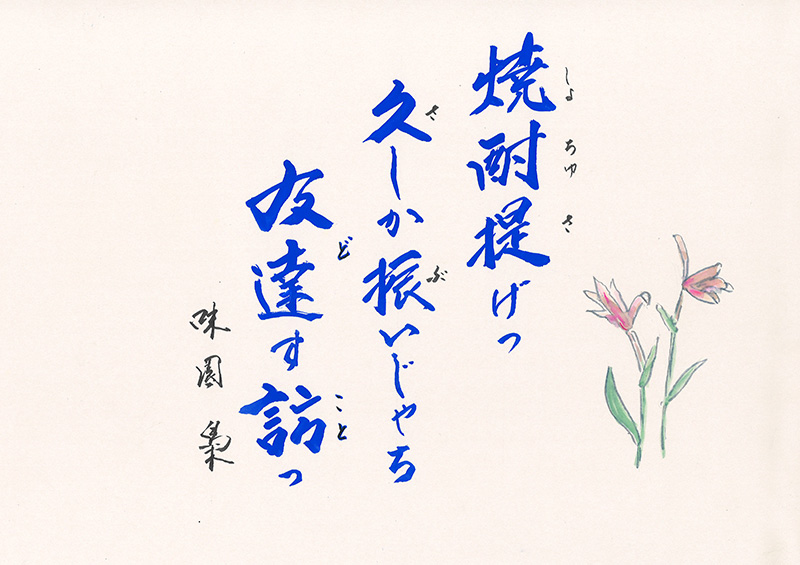 焼酎提げっ
しよ ちゆ さ
久しか振いじゃち
さ ぶ
友達す訪っ
ど こと
味園 梟